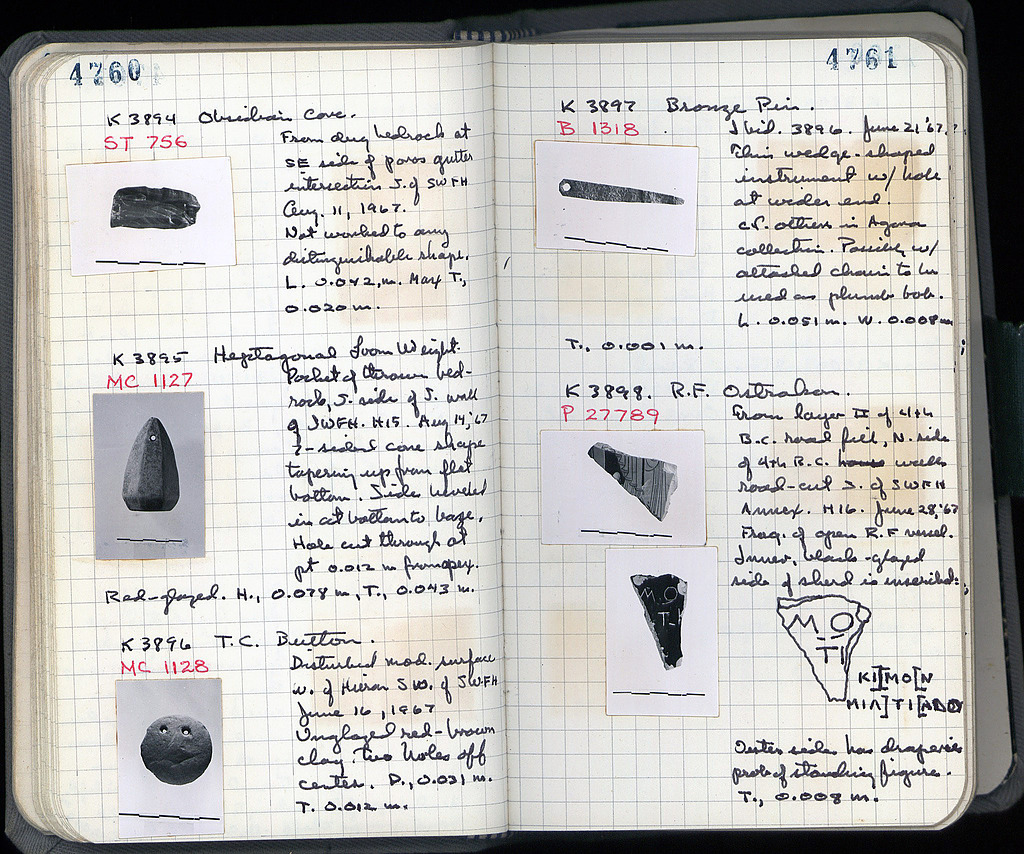 4760
K 3894 Obsidian Core.
ST 756
From dug bedrock at
SE side of poros gutter
intersection S. of SWFH
Aug. 11, 1967.
Not worked to any
distinguishable shape.
L. 0.042, m. Max T.,
0.020 m.
K 3895 Heptagonal Loom Weight.
MC 1127
Pocket of thrown bed-
rock, S. side of S. wall
of SWFH. H15. Aug 14,'67
7-sided cone shape
tapering up from flat
bottom. Side beveled
in at bottom to base.
Hole cut through at
pt 0.012 m from apex.
Red-glazed. H., 0.078 m, T., 0.043 m.
K 3896 T.C. Button.
MC 1128
Disturbed mod. surface
w. of Hieron SW. of SWFH
June 16, 1967
Unglazed red-brown
clay. Two holes off
center. D., 0.031 m.
T. 0.012 m.
4761
K 3897 Bronze Pin.
B 1318
Ibid. 3896. June 21 '67.?
Thin wedge-shaped
instrument w/ hole
at wider end.
cf. others in Agora
collection. Possibly w/
attached chain to be
used as plumb bob.
L. 0.051 m. W. 0.008 m
T., 0.001 m.
K 3898. R.F. Ostrakon.
P 27789
From layer II of 4th
B.C. road fill, N. side
of 4th B.C. walls
road-cut S. of SWFH
Annex. H16. June 28,'67
Frag. of open R.F vessel.
Inner, black-glazed
side of sherd is inscribed:
M O
TI
M O
TI
KI]MO[N
MIΛ]TI[ADOY
Outer side has draperies
prob of standing figure.
T., 0.008 m.